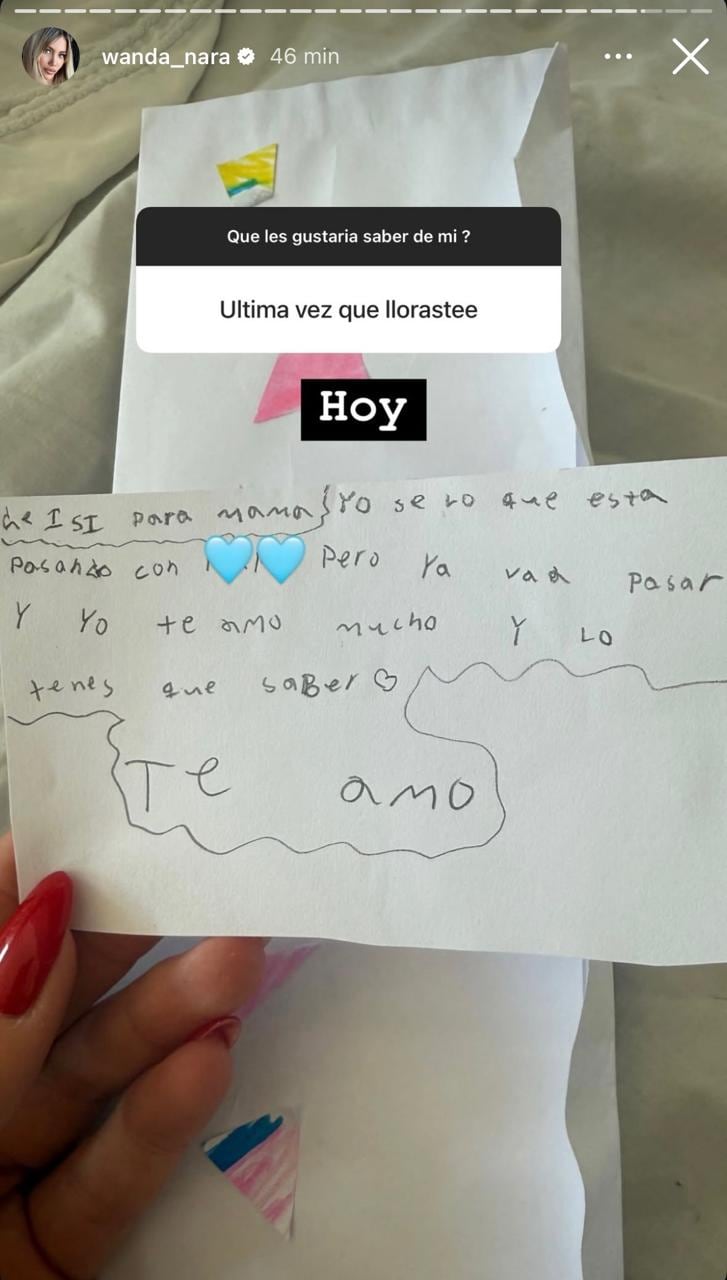 wanda_nara 46 min
Que les gustaria saber de mi ?
Ultima vez que llorastee
Hoy
de ISI para mama Yo se lo que esta
pasando con Pero Ya vaa pasar
Y Yo te amo mucho Y LO
tenes que saBer
Te amo